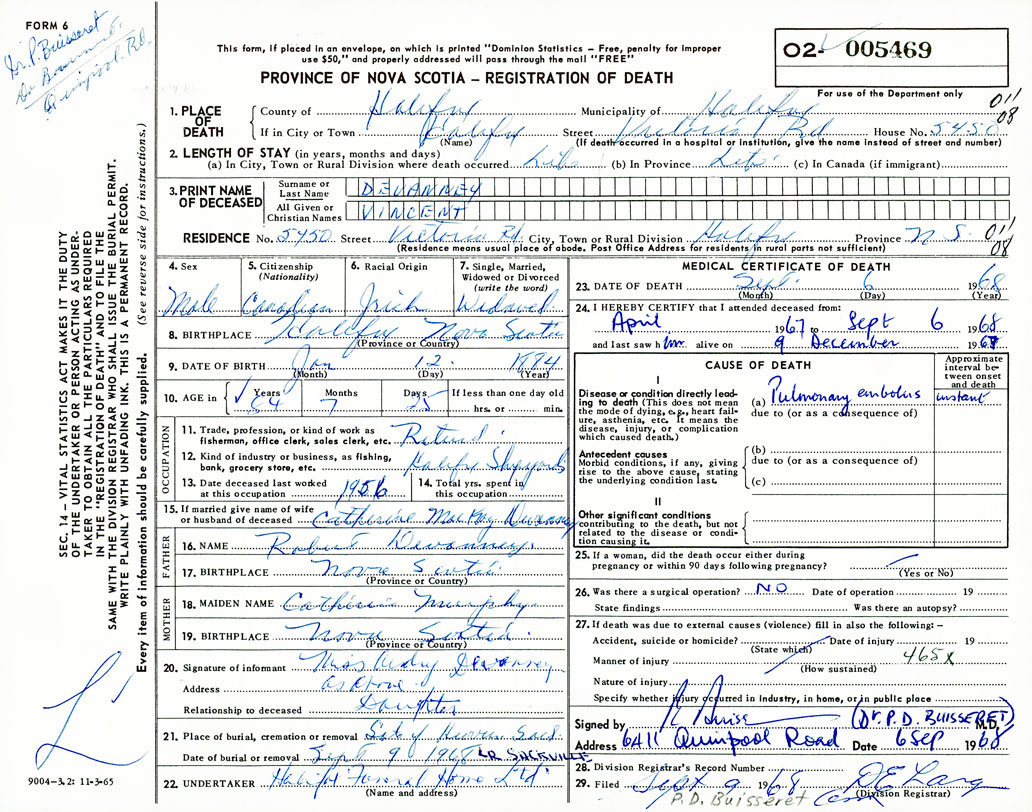 FORM 6
Dr. P. Buisseret
Quinpool Rd.
This form, if placed in an envelope, on which is printed "Dominion Statistics – Free, penalty for improper
use $50," and properly addressed will pass through the mail "FREE"
PROVINCE OF NOVA SCOTIA – REGISTRATION OF DEATH
02- 005469
For use of the Department only
011
08
1. PLACE OF DEATH
County of Halifax Municipality of Halifax
If in City or Town Halifax Street Victoria Rd House No. 5450
(Name) (If death occurred in a hospital or institution, give the name instead of street and number)
2. LENGTH OF STAY (in years, months and days)
(a) In City, Town or Rural Division where death occurred Life (b) In Province Life (c) In Canada (if immigrant)
3. PRINT NAME OF DECEASED
Surname or Last Name DEVANNEY
All Given or Christian Names VINCENT
RESIDENCE No. 5450 Street Victoria Rd. City, Town or Rural Division Halifax Province N.S.
(Residence means usual place of abode. Post Office Address for residents in rural parts not sufficient)
011
08
4. Sex 5. Citizenship (Nationality) 6. Racial Origin 7. Single, Married, Widowed or Divorced (write the word)
Male Canadian Irish Widowed
8. BIRTHPLACE Halifax Nova Scotia
(Province or Country)
9. DATE OF BIRTH Jan 12 1884
(Month) (Day) (Year)
10. AGE in Years Months Days If less than one day old
84 7 25 hrs. or min.
OCCUPATION
11. Trade, profession, or kind of work as fisherman, office clerk, sales clerk, etc. Retired
12. Kind of industry or business, as fishing, bank, grocery store, etc. Halifax Shipyards
13. Date deceased last worked at this occupation 1956 14. Total yrs. spent in this occupation
15. If married give name of wife or husband of deceased Catherine MacKay Devanney
FATHER
16. NAME Robert Devanney
17. BIRTHPLACE Nova Scotia
(Province or Country)
MOTHER
18. MAIDEN NAME Catherine Murphy
19. BIRTHPLACE Nova Scotia
(Province or Country)
20. Signature of informant Miss Audry Devanney
Address as above
Relationship to deceased Daughter
21. Place of burial, cremation or removal Gate of Heaven Sack.
Date of burial or removal Sept 9 1968 LR. SACKVILLE
22. UNDERTAKER Halifax Funeral Home Ltd
(Name and address)
MEDICAL CERTIFICATE OF DEATH
23. DATE OF DEATH Sept. 6 1968
(Month) (Day) (Year)
24. I HEREBY CERTIFY that I attended deceased from:
April 1967 to Sept 6 1968
and last saw him alive on 9 December 1967
CAUSE OF DEATH
Approximate interval between onset and death
I
Disease or condition directly leading to death (This does not mean the mode of dying, e.g., heart failure, asthenia, etc. It means the disease, injury, or complication which caused death.)
(a) Pulmonary embolus instant
due to (or as a consequence of)
Antecedent causes
Morbid conditions, if any, giving rise to the above cause, stating the underlying condition last.
(b)
due to (or as a consequence of)
(c)
II
Other significant conditions
contributing to the death, but not related to the disease or condition causing it.
25. If a woman, did the death occur either during pregnancy or within 90 days following pregnancy?
(Yes or No)
26. Was there a surgical operation? NO Date of operation 19
State findings Was there an autopsy?
27. If death was due to external causes (violence) fill in also the following: –
Accident, suicide or homicide? Date of injury 19
(State which)
Manner of injury 465x
(How sustained)
Nature of injury
Specify whether injury occurred in industry, in home, or in public place
Signed by (Dr. P.D. BUISSERET) M.D.
Address 6411 Quinpool Road Date 6 Sep 1968
28. Division Registrar's Record Number
29. Filed Sept 9 1968 D E Lang
(Division Registrar)
P.D. Buisseret
SEC. 14 – VITAL STATISTICS ACT MAKES IT THE DUTY
OF THE UNDERTAKER OR PERSON ACTING AS UNDER-
TAKER TO OBTAIN ALL THE PARTICULARS REQUIRED
IN THE "REGISTRATION OF DEATH" AND TO FILE THE
SAME WITH THE DIVISION REGISTRAR WHO SHALL ISSUE THE BURIAL PERMIT.
WRITE PLAINLY WITH UNFADING INK. THIS IS A PERMANENT RECORD.
Every item of information should be carefully supplied. (See reverse side for instructions.)
9004-3.2: 11-3-65